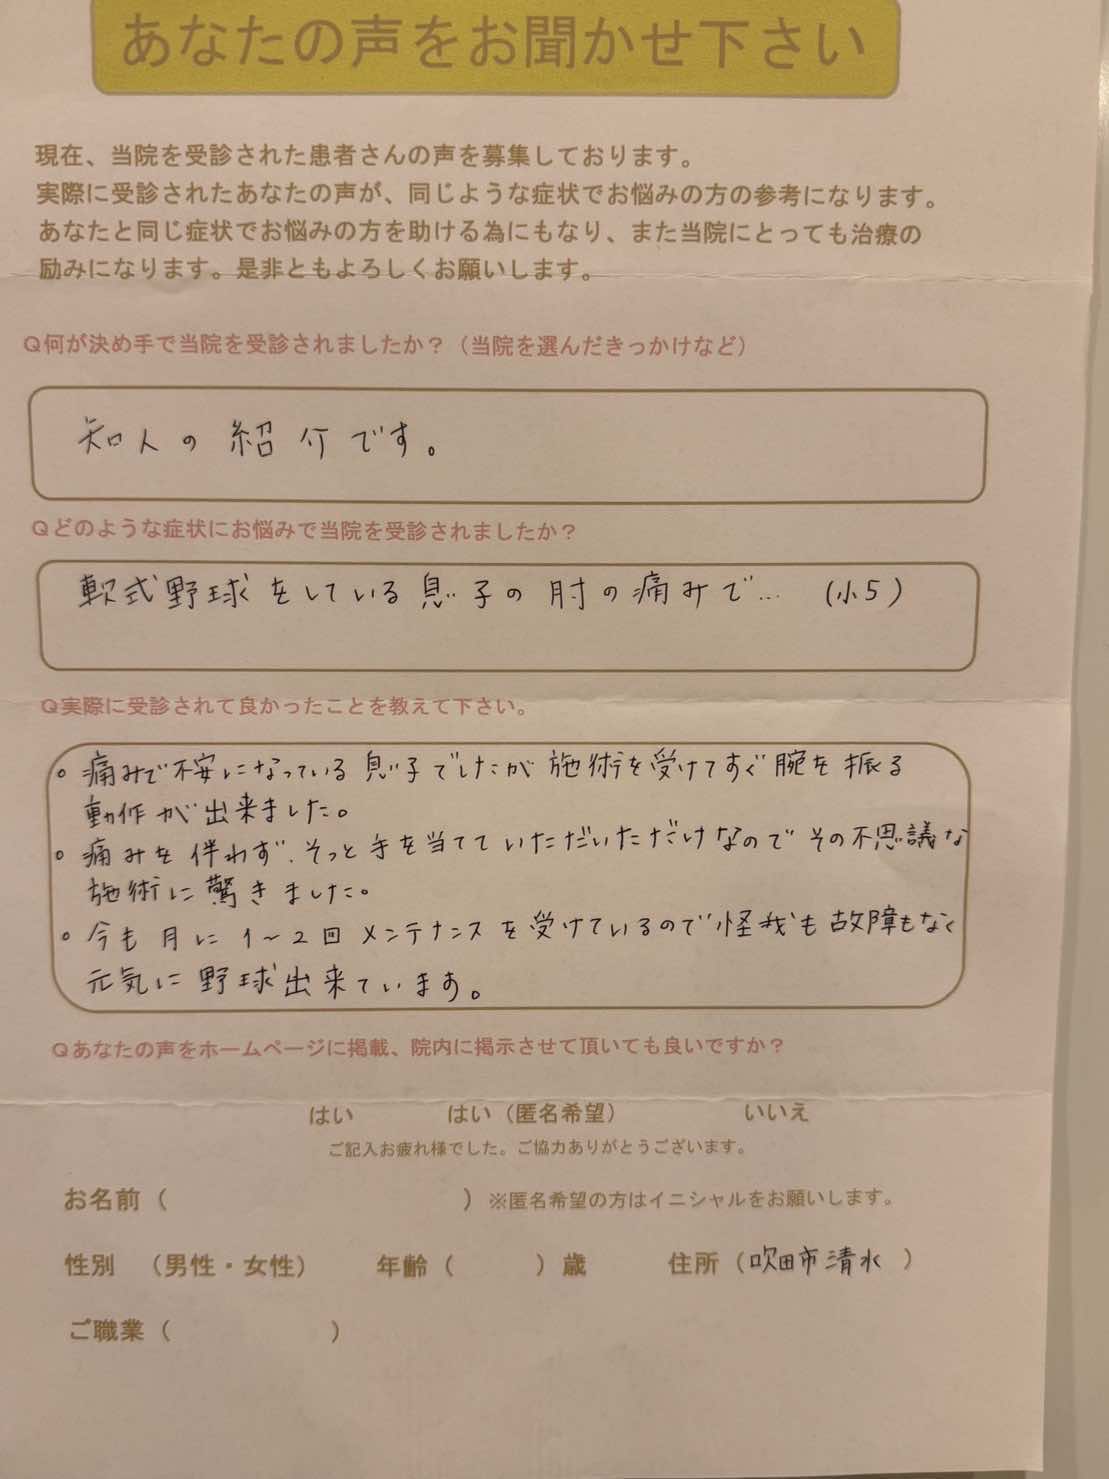 あなたの声をお聞かせ下さい
現在、当院を受診された患者さんの声を募集しております。
実際に受診されたあなたの声が、同じような症状でお悩みの方の参考になります。
あなたと同じ症状でお悩みの方を助ける為にもなり、また当院にとっても治療の
励みになります。是非ともよろしくお願いします。
Q何が決め手で当院を受診されましたか？（当院を選んだきっかけなど）
知人の紹介です。
Qどのような症状にお悩みで当院を受診されましたか？
軟式野球をしている息子の肘の痛みで… (小5)
Q実際に受診されて良かったことを教えて下さい。
。痛みで不安になっている息子でしたが施術を受けてすぐ腕を振る
動作が出来ました。
。痛みを伴わず、そっと手を当てていただいただけなのでその不思議な
施術に驚きました。
。今も月に1～2回メンテナンスを受けているので怪我も故障もなく
元気に野球出来ています。
Qあなたの声をホームページに掲載、院内に掲示させて頂いても良いですか？
はい はい（匿名希望） いいえ
ご記入お疲れ様でした。ご協力ありがとうございます。
お名前（ ）※匿名希望の方はイニシャルをお願いします。
性別 （男性・女性） 年齢（ ）歳 住所（吹田市清水）
ご職業（ ）